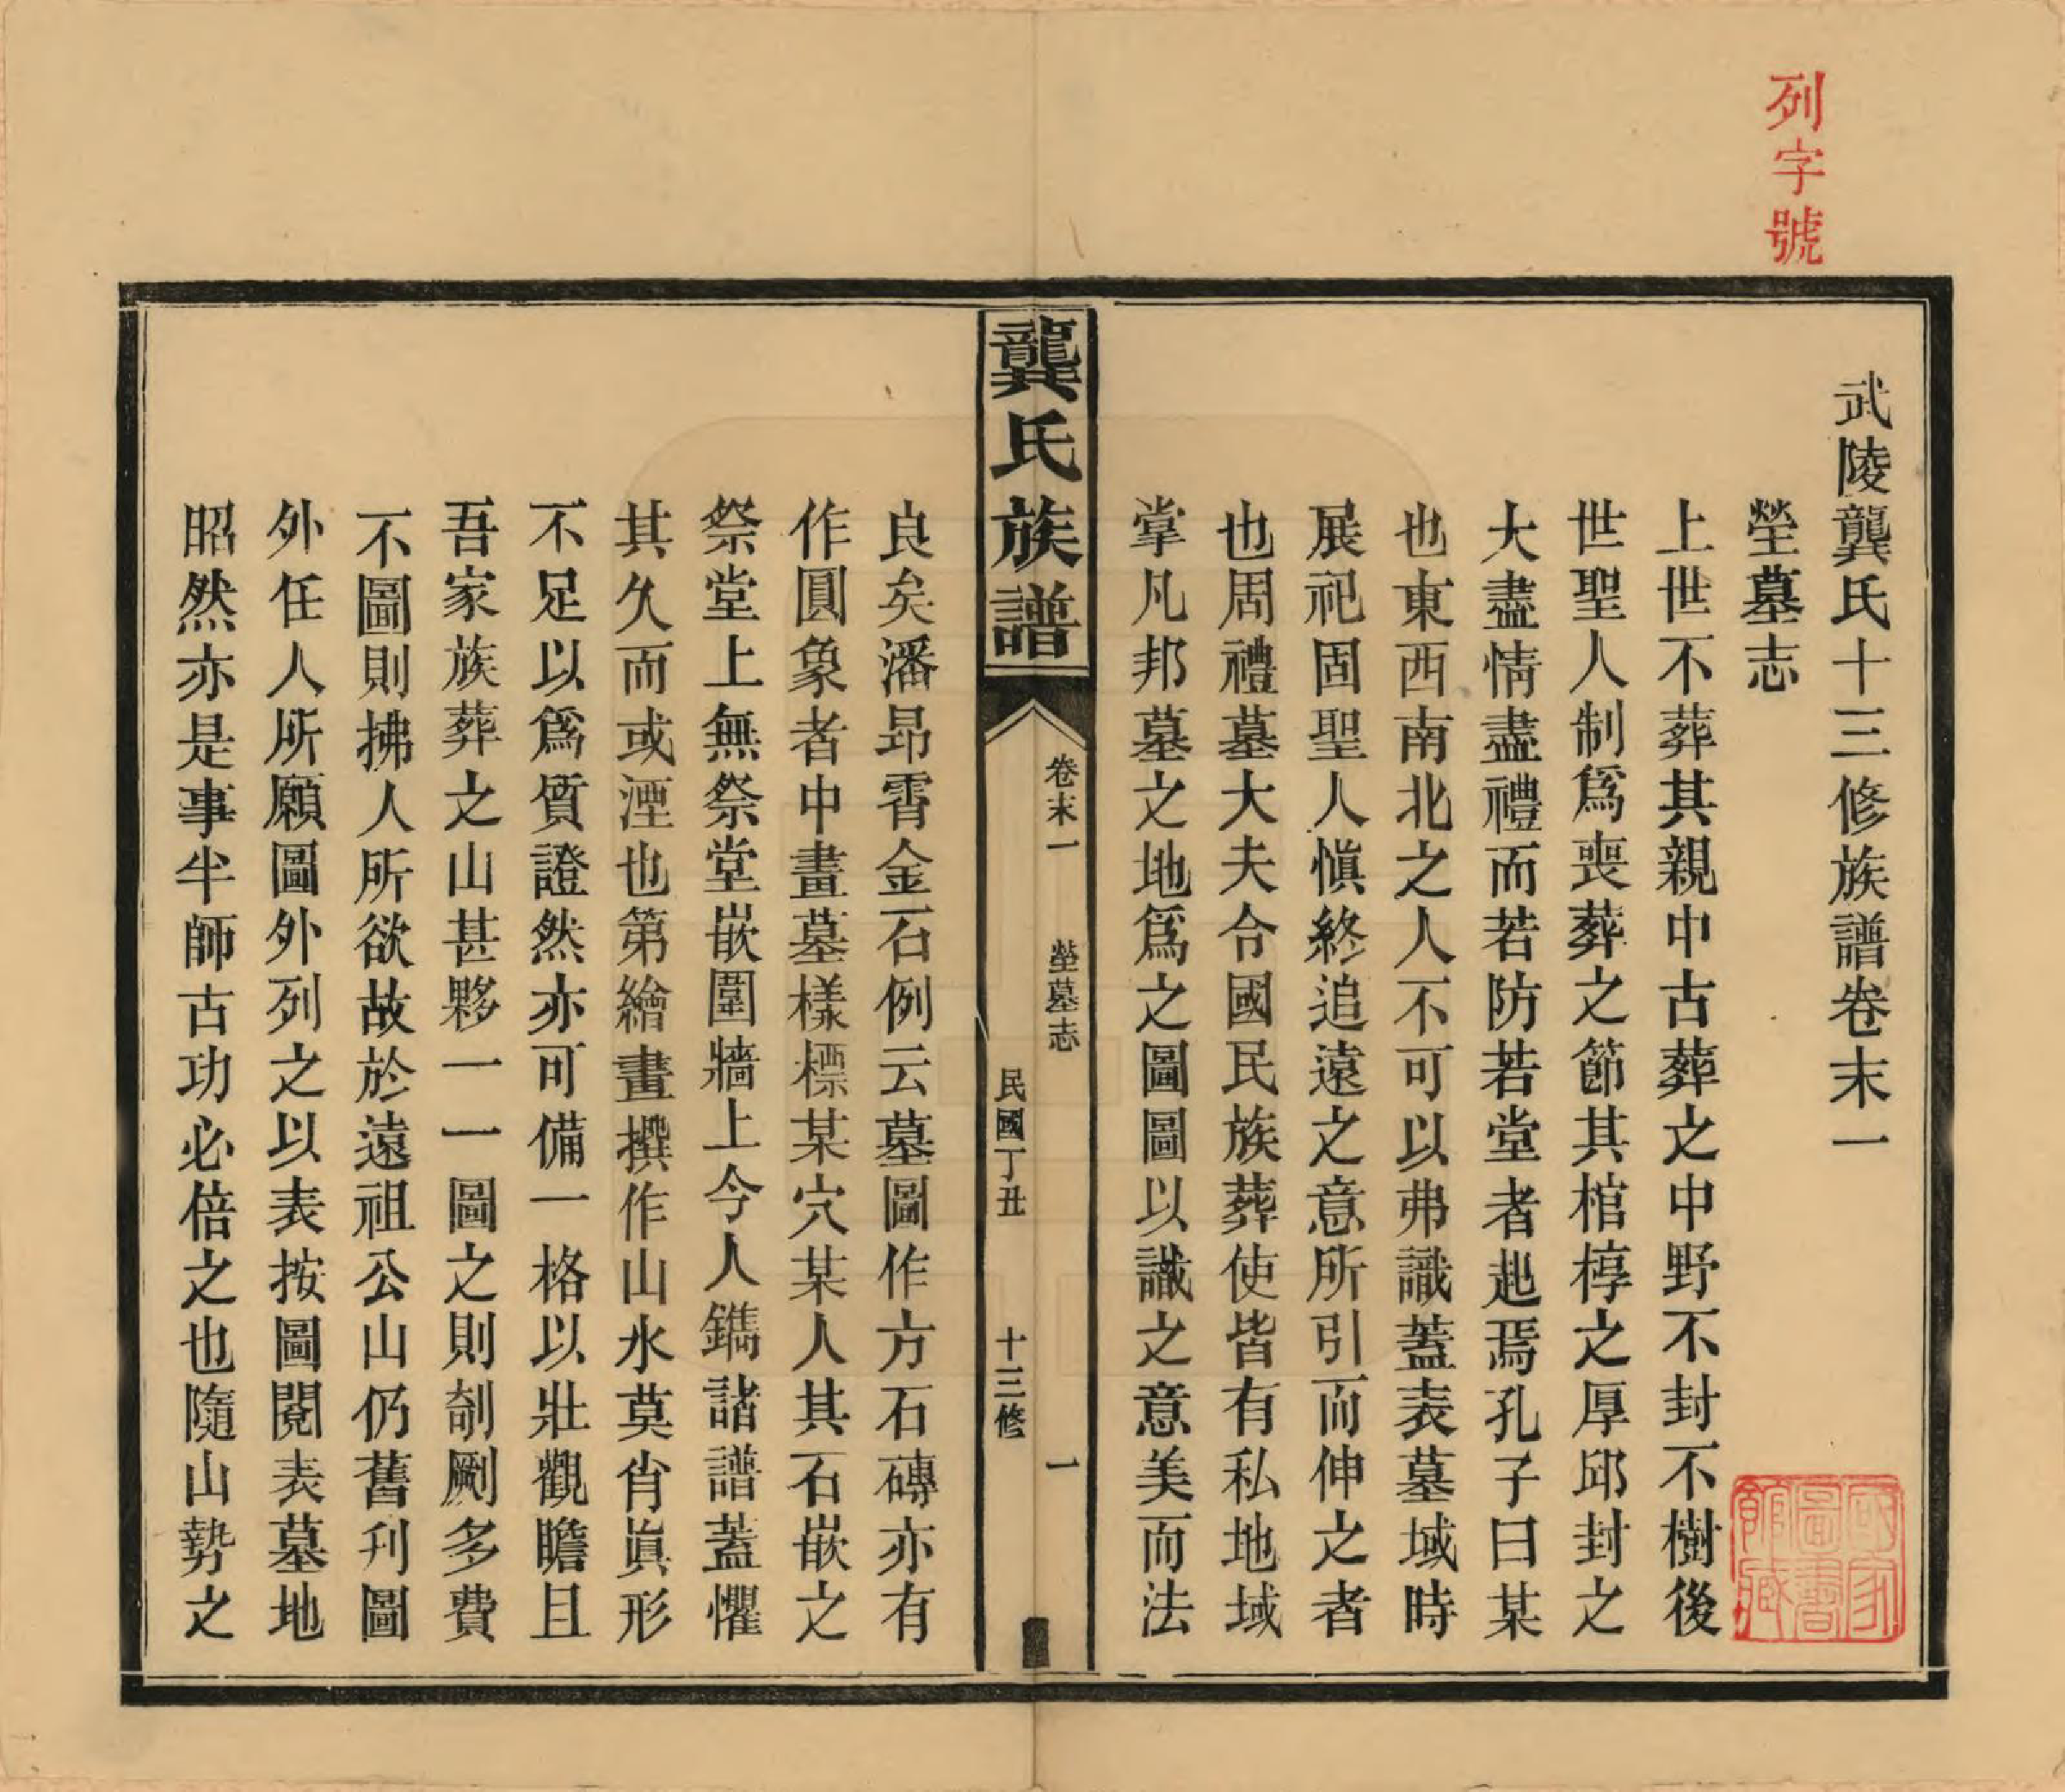 列字號
武陵龔氏十三修族譜卷末一
塋墓志
上世不葬其親中古葬之中野不封不樹後
世聖人制爲喪葬之節其棺椁之厚邱封之
大盡情盡禮而若防若堂者起焉孔子曰某
也東西南北之人不可以弗識蓋表墓域時
展祀固聖人愼終追遠之意所引而伸之者
也周禮墓大夫令國民族葬使皆有私地域
掌凡邦墓之地爲之圖圖以識之意美而法
龔氏族譜
卷末一
塋墓志
一
民國丁丑
十三修
良矣潘昻霄金石例云墓圖作方石磚亦有
作圓象者中畫墓樣標某穴某人其石嵌之
祭堂上無祭堂嵌圍牆上今人鐫諸譜蓋懼
其久而或湮也第繪畫撰作山水莫肖眞形
不足以爲質證然亦可備一格以壯觀瞻且
吾家族葬之山甚夥一一圖之則剞劂多費
不圖則拂人所欲故於遠祖公山仍舊刋圖
外任人所願圖外列之以表按圖閱表墓地
昭然亦是事半師古功必倍之也隨山勢之
國家圖書館藏